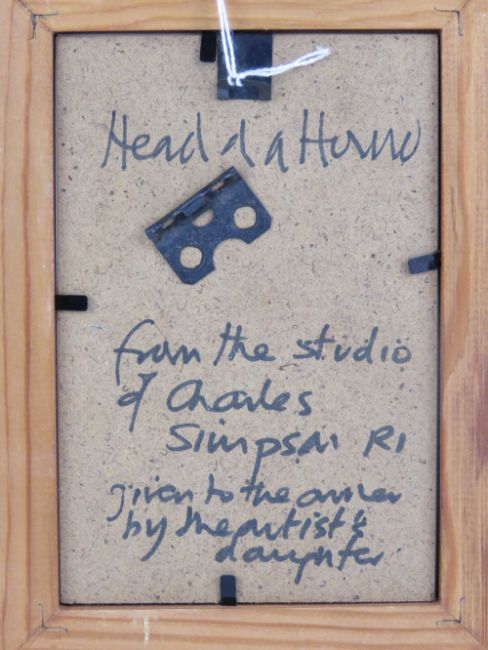 Head of a Hound
from the studio
of Charles
Simpson RI
given to the owner
by the artist's
daughter